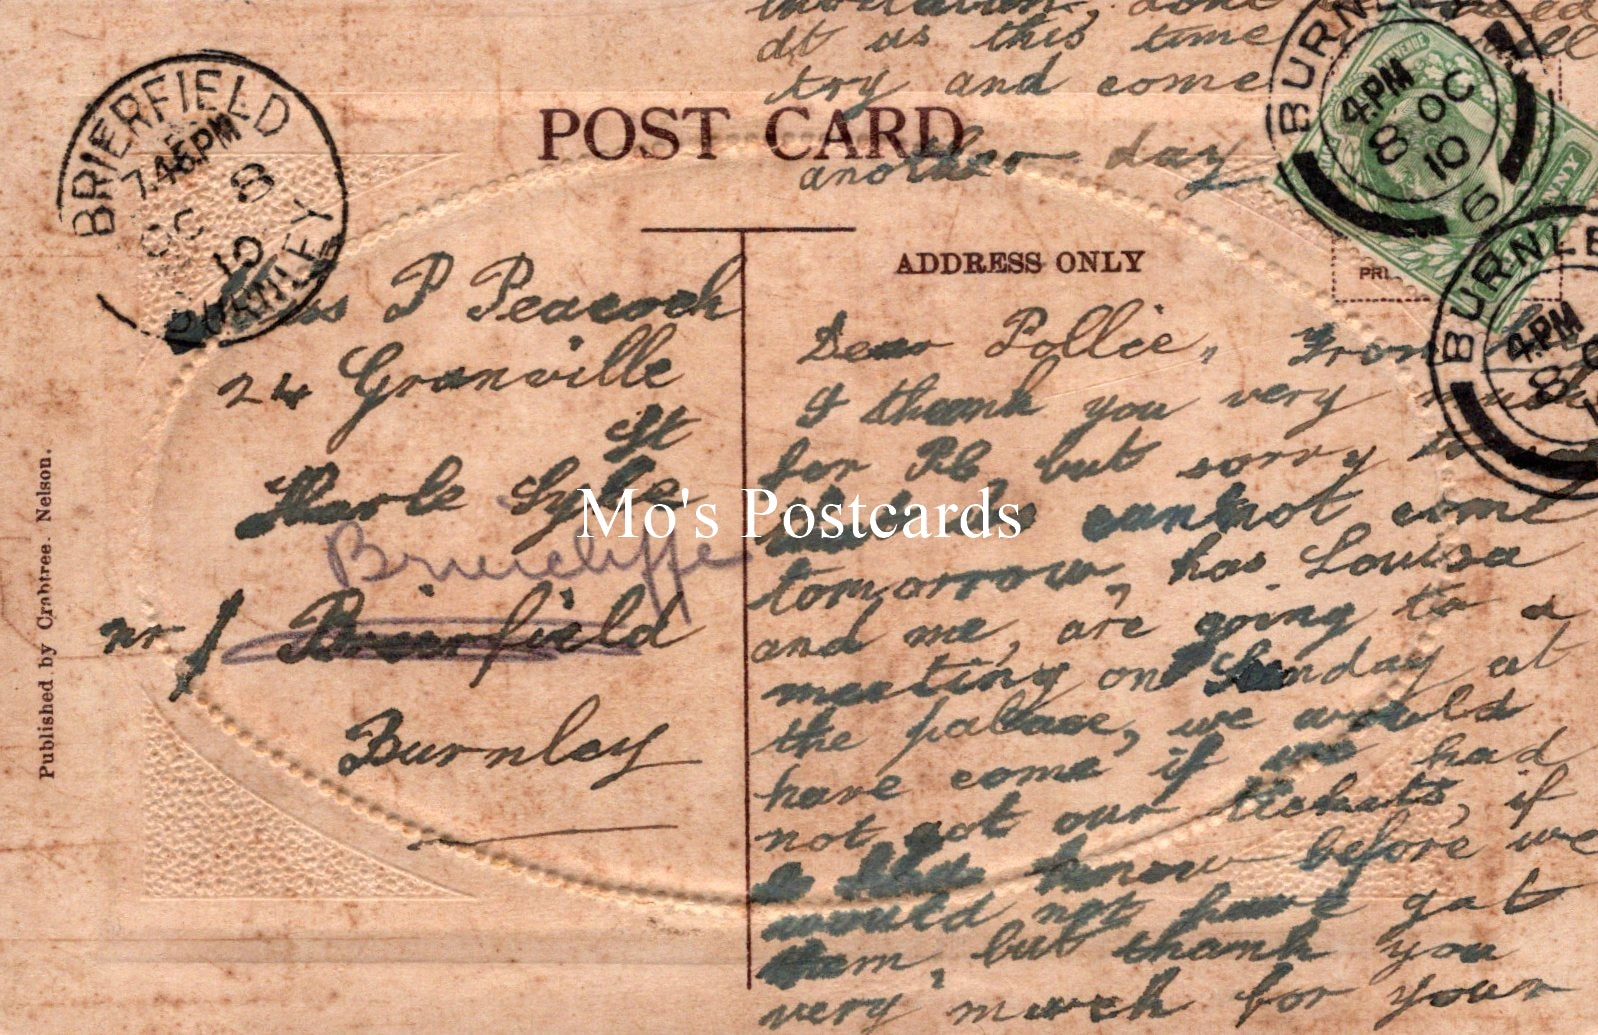 BRIERFIELD
7.45.PM
OC 8
10
BURNLEY
POST CARD
ADDRESS ONLY
BURNLEY
4.PM
8 OC
10
6
BURNLE
4.PM
8
Miss P Peacock
24 Granville
St
Harle Syke
Briercliffe
nr Brierfield
Burnley
Published by Crabtree. Nelson.
Mo's Postcards
Dear Pollie, From
I thank you very much
for P.C, but sorry to
cannot come
tomorrow, has Louisa
and me, are going to a
meeting on Sunday at
the palace, we would
have come if we had
not got our tickets, if
I had know before we
would not have got
them, but thank you
very much for your
invitation,
at as this time
try and come
another day